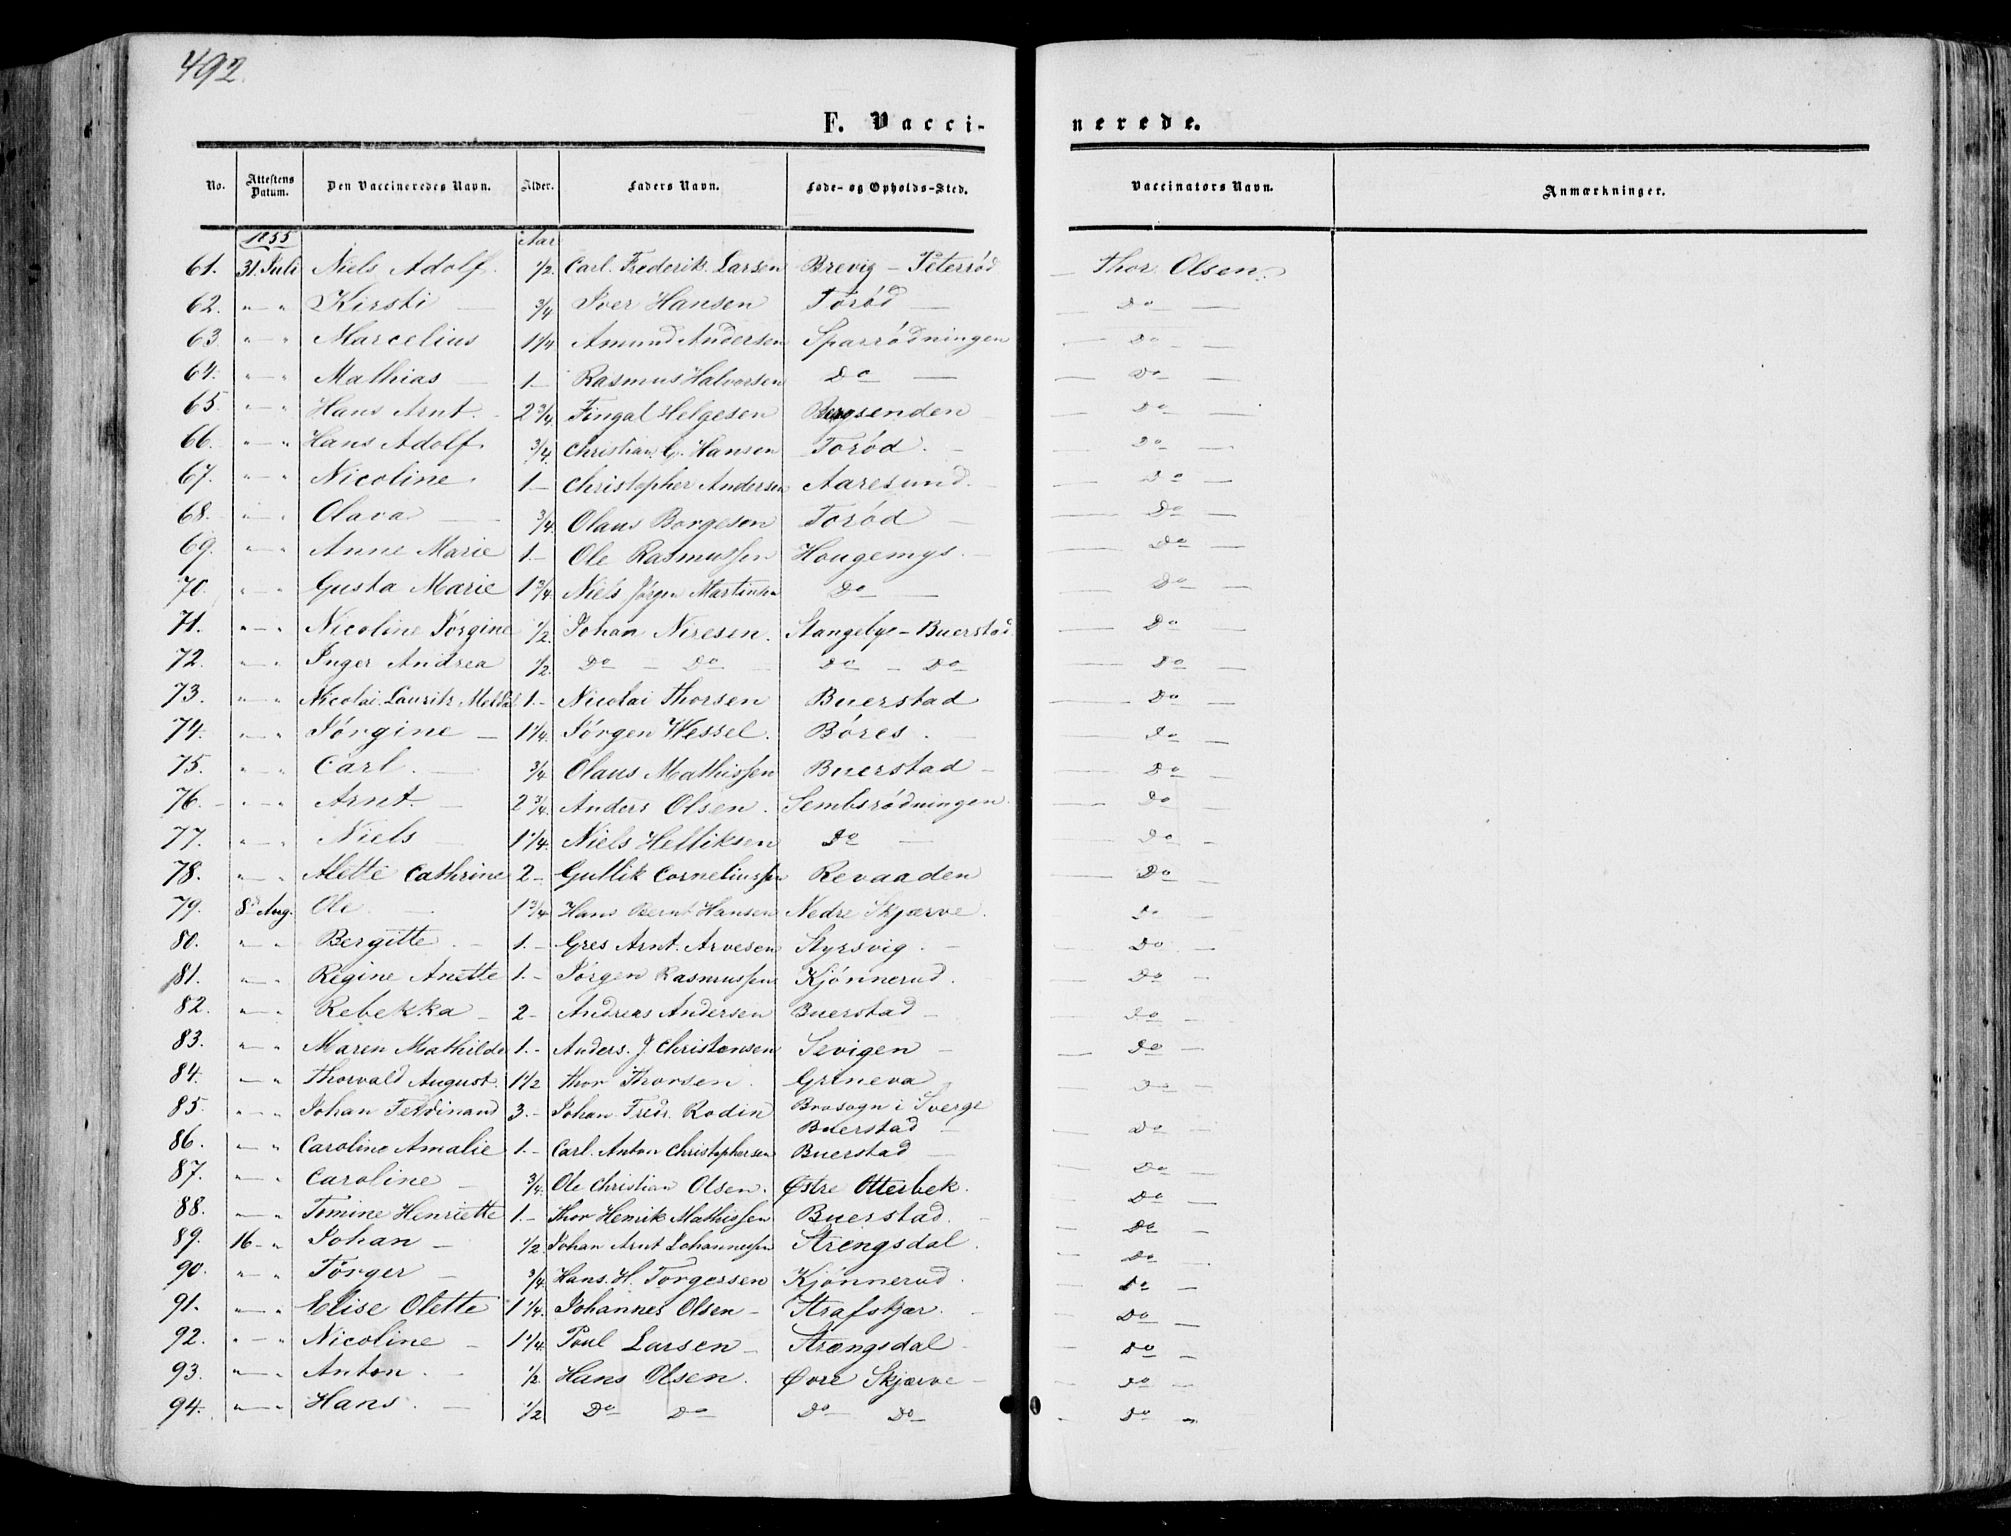 492.
F. Vacci- nerede.
No. Attestens Datum. Den Vaccineredes Navn. Alder. Faders Navn. Føde- og Opholds-Sted. Vaccinators Navn. Anmærkninger.
1855 Aar
61. 31. Juli Niels Adolf. 1/2 Carl. Frederik Larsen Brevig - Peterrød Thor Olsen.
62. " — " Kirsti — 3/4 Iver Hansen Torød — Do
63. " — " Marcelius 1 1/4 Amund Andersen Sparrødningen Do
64. " — " Mathias — 1.- Rasmus Halvorsen Do — Do
65. " — " Hans Arnt. 2 3/4 Fingal Helgesen Bergsenden Do
66. " — " Hans Adolf 3/4 Christian C. Hansen Torød. Do
67. " — " Nicoline 1.- Christopher Andersen Aaresund. Do
68. " — " Olava — 3/4 Olaus Borgesen Torød — Do
69. " — " Anne Marie 1.- Ole Rasmussen Hougemys. Do
70. " — " Gusta Marie 1 3/4 Niels Jørgen Martinsen Do — Do
71. " — " Nicoline Jørgine 1/2 Johan Niresen. Stangeby - Buerstad Do
72. " — " Inger Andrea 1/2 Do — Do Do — Do Do
73. " — " Nicolai Lauritz Meldal 1.- Nicolai Thorsen Buerstad Do
74. " — " Jørgine — 1 1/4 Jørgen Wessel. Børes. Do
75. " — " Carl. — 3/4 Olaus Mathissen Buerstad — Do
76. " — " Arnt. — 2 3/4 Anders Olsen. Sembsrødningen. Do
77. " — " Niels — 1 1/4 Niels Helliksen Do — Do
78. " — " Alette Cathrine 2 - Gullik Corneliussen Revaaden Do
79. 8d Aug. Ole — 1 3/4 Hans Bernt Hansen Nedre Skjærve. Do
80. " — " Bergitte. - 1.- Gres Arnt. Arvesen Styrsvig. — Do
81. " — " Regine Anette 1.- Jørgen Rasmussen Kjønnerud. Do
82. " — " Rebekka — 2 - Andreas Andersen Buerstad — Do
83. " — " Maren Mathilde 1.- Anders. J. Christensen Sevigen — Do
84. " — " Thorvald August. 1 1/2 Thor Thorsen. Grineva Do
85. " — " Johan Ferdinand 3.- Johan Fredr. Rodin Brosogn i Sverge
Buerstad — Do
86. " — " Caroline Amalie 1.- Carl. Anton Christophersen Buerstad — Do
87. " — " Caroline — 3/4 Ole Christian Olsen. Østre Otterbek. Do
88. " — " Tomine Henriette 1.- Thor Henrik Mathissen Buerstad. Do
89. 16 - " Johan — 1/2 Johan Arnt Johannessen Strengsdal. Do
90. " — " Torger — 3/4 Hans. H. Torgersen Kjønnerud. Do
91. " — " Elise Olette 1 1/4 Johannes Olsen - Strafskjær. Do
92. " — " Nicoline — 1 1/4 Poul Larsen — Strængsdal — Do
93. " — " Anton. — 1/2 Hans Olsen. Øvre Skjærve — Do
94. " — " Hans. — 1/2 Do Do Do — Do Do